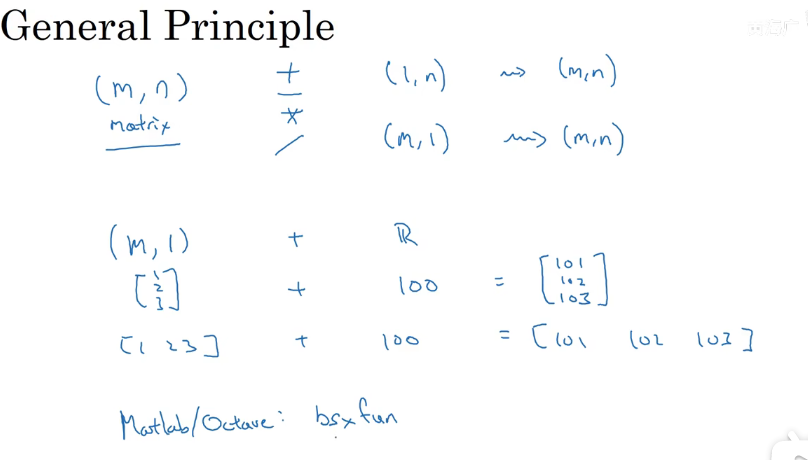 General Principle
(m, n) + (1, n) ⇝ (m, n)
matrix * / (m, 1) ⇝ (m, n)
(m, 1) + ℝ
[1 2 3] + 100 = [101 102 103]
[1 2 3] + 100 = [101 102 103]
Matlab/Octave: bsxfun